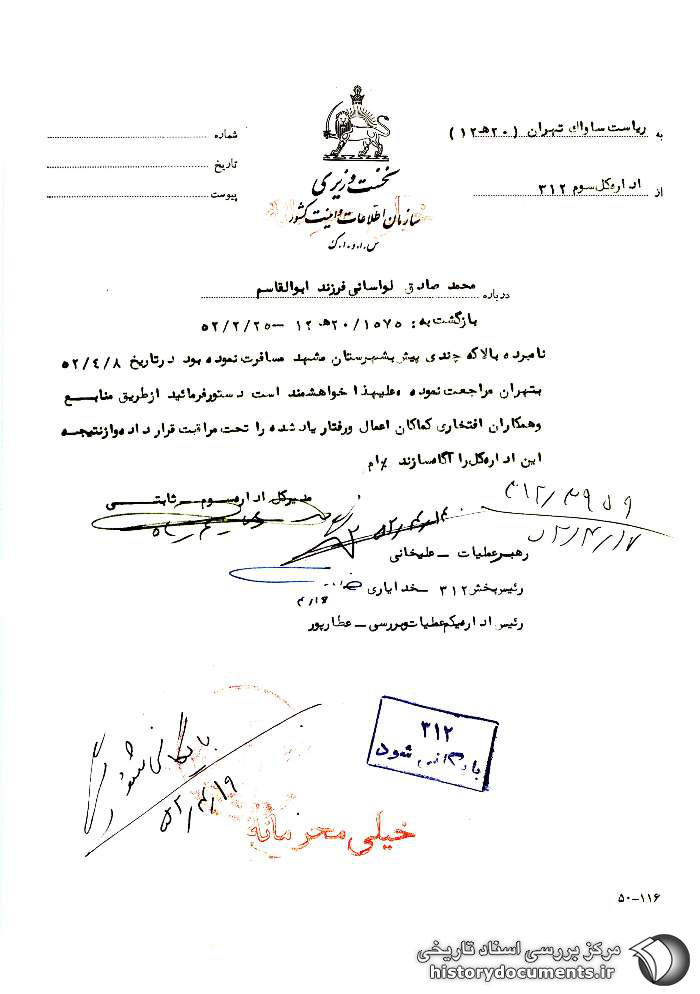 به ریاست ساواک تهران (۲۰هـ۱۲)
از اداره کل سوم ۳۱۲
شماره
تاریخ
پیوست
نخست وزیری
سازمان اطلاعات و امنیت کشور
س.ا.و.ا.ک
درباره محمد صادق لواسانی فرزند ابوالقاسم
بازگشت به: ۲۰/۱۵۷۵هـ ۱۲ – ۵۲/۲/۲۵
نامبرده بالا که چندی پیش بشهرستان مشهد مسافرت نموده بود در تاریخ ۵۲/۴/۸
بتهران مراجعت نموده علیهذا خواهشمند است دستور فرمائید از طریق منابع
و همکاران افتخاری کماکان اعمال و رفتار یاد شده را تحت مراقبت قرار داده و از نتیجه
این اداره کل را آگاه سازند
مدیر کل اداره سوم – ثابتی
۳۱۲/۳۹۵۹
۵۲/۴/۱۷
رهبر عملیات – علیخانی
رئیس بخش ۳۱۲ – خدایاری
رئیس اداره یکم عملیات و بررسی – عطارپور
۳۱۲
بایگانی شود
بایگانی شود
۵۲/۴/۱۹
خیلی محرمانه
۵۰-۱۱۶
مرکز بررسی اسناد تاریخی
historydocuments.ir